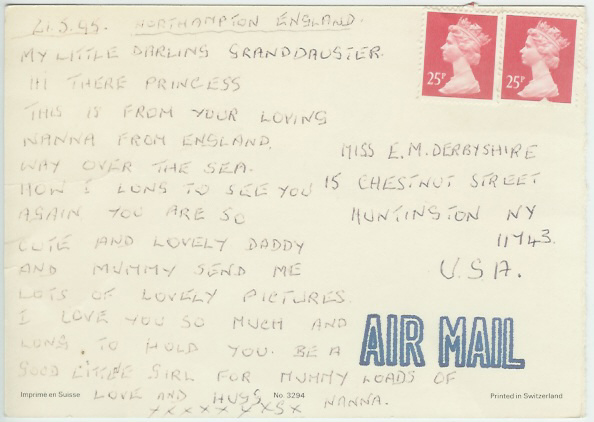 21.5.95. NORTHAMPTON ENGLAND.
MY LITTLE DARLING GRANDDAUSTER.
HI THERE PRINCESS
THIS IS FROM YOUR LOVING
NANNA FROM ENGLAND.
WAY OVER THE SEA.
HOW I LONG TO SEE YOU
AGAIN YOU ARE SO
CUTE AND LOVELY DADDY
AND MUMMY SEND ME
LOTS OF LOVELY PICTURES.
I LOVE YOU SO MUCH AND
LONG TO HOLD YOU. BE A
GOOD LITTLE GIRL FOR MUMMY LOADS OF
LOVE AND HUGS NANNA.
XXXXX XXSX
25P
25P
MISS E.M. DERBYSHIRE
15 CHESTNUT STREET
HUNTINGTON NY
11743.
U.S.A.
AIR MAIL
Imprime en Suisse
No. 3294
Printed in Switzerland